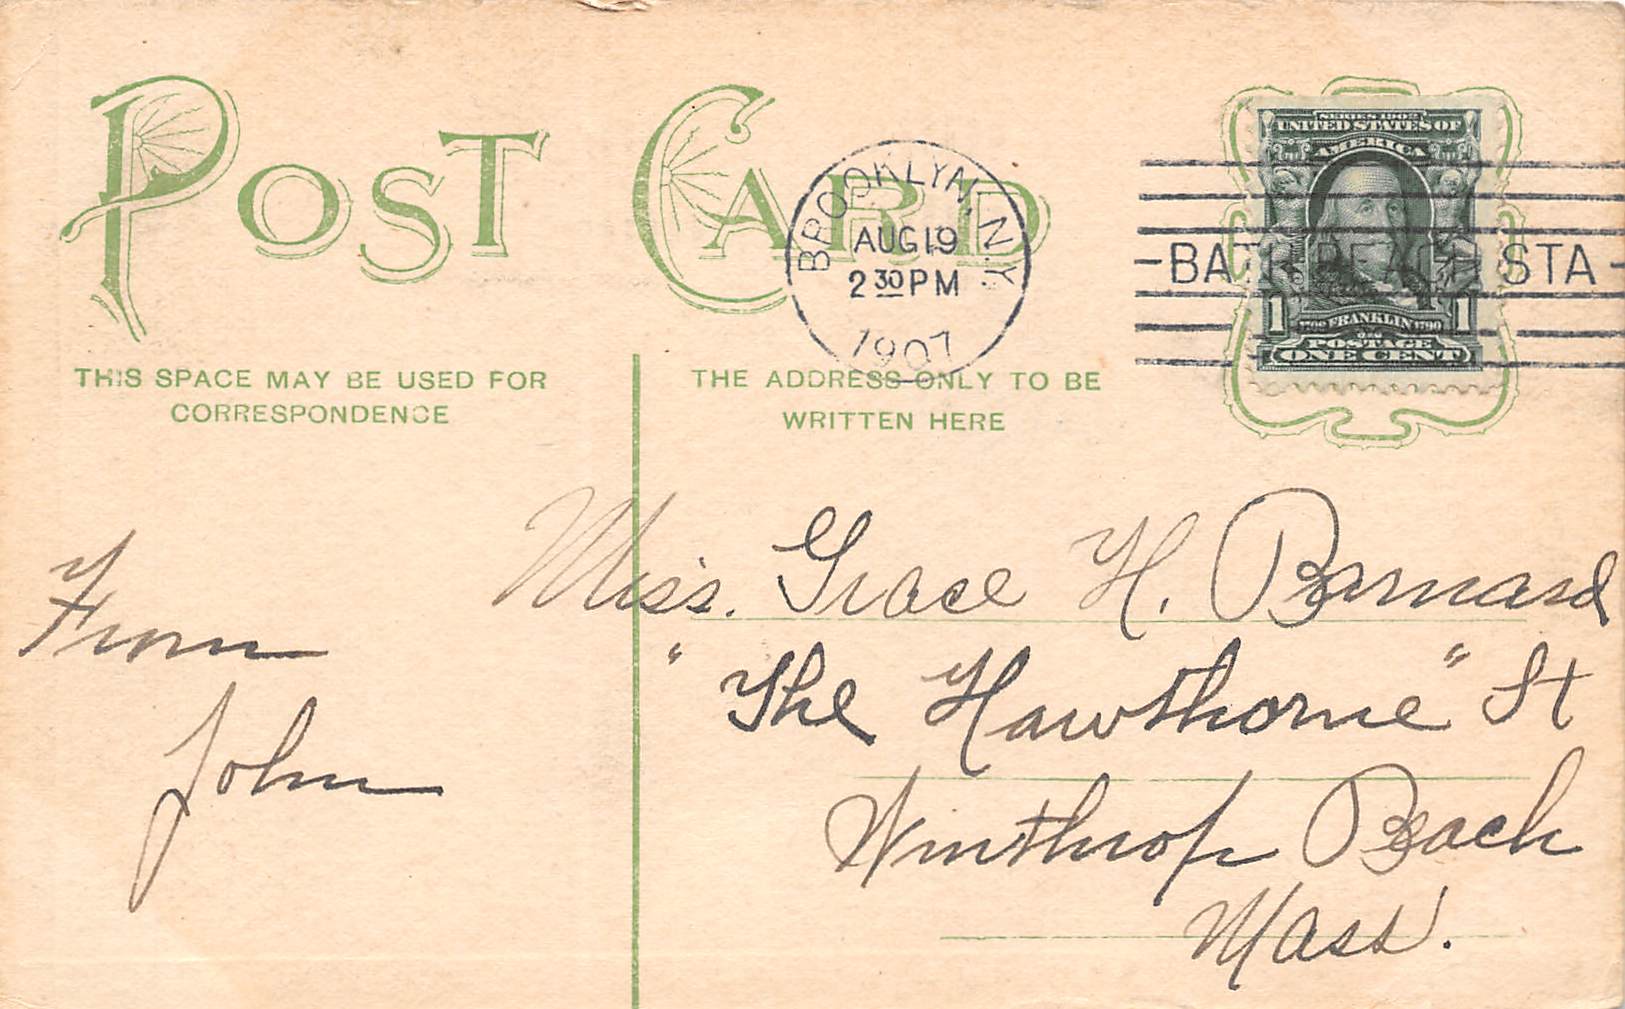 POST CARD
THIS SPACE MAY BE USED FOR
CORRESPONDENCE
THE ADDRESS ONLY TO BE
WRITTEN HERE
BROOKLYN, N.Y.
AUG 19
2 30 PM
1907
STA
SERIES 1902
UNITED STATES OF
AMERICA
1 1706 FRANKLIN 1790 1
POSTAGE
ONE CENT
From
John
Miss. Grace H. Barnard
"The Hawthorne" St
Winthrop Beach
Mass.